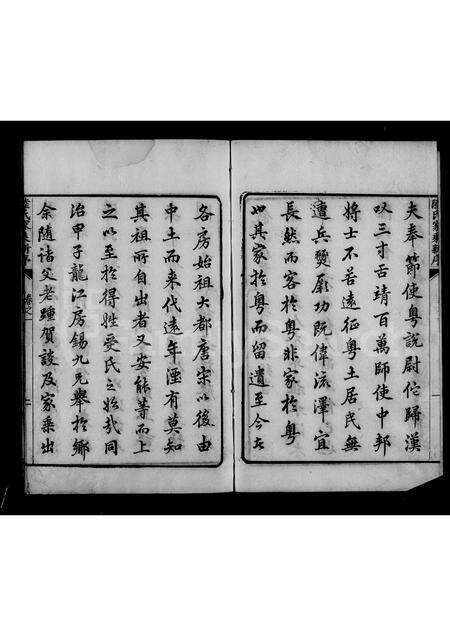 夫奉節使粤說尉佗歸漢
以三寸舌靖百萬師使中邦
將士不苦遠征粤土居民無
遭兵燹厥功既偉流澤宜
長然而客於粤非家於粤
也其家於粤而留遺至今者
各房始祖大都唐宋以後由
中土而来代遠年湮有莫知
其祖所自出者又安能等而上
之以至於得姓受氏之始哉同
治甲子龍江房錫九兄舉於鄉
余隨諸父老踵賀談及家乘出